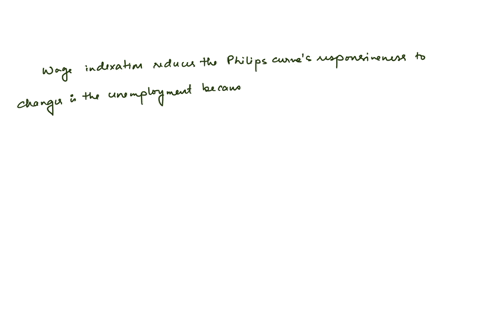 Wage indexation reduces the Philips curve's responsiveness to
changes in the unemployment becaus